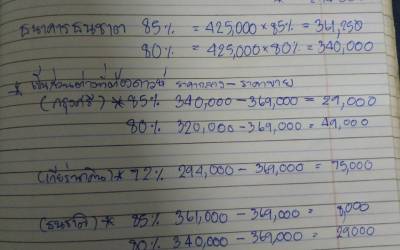 ธนาคารธนชาต 85% = 425,000×85% = 361,250
80% = 425,000×80% = 340,000
* เป็นส่วนต่างที่ต้องดาวน์ ราคากลาง - ราคาขาย
(กรุงศรี) * 85% 340,000 - 369,000 = 29,000
80% 320,000 - 369,000 = 49,000
(เกียรตินาคิน) * 72% 294,000 - 369,000 = 75,000
(ธนชาติ) * 85% 361,000 - 369,000 = 8,000
80% 340,000 - 369,000 = 29000